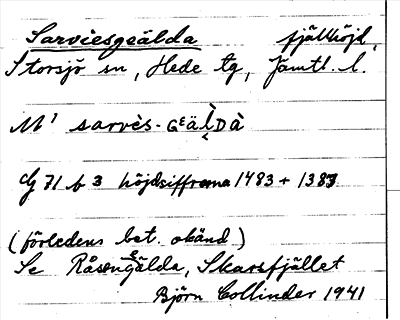 Sarviesgeälda fjällhöjd,
Storsjö sn, Hede tg, Jämtl. l.
M' sarvès-Gᵉäl̀Dà
G 71 b 3 höjdsiffrorna 1483 + 1383
(förledens bet. okänd)
Se Råsengeälda, Skarsfjället
Björn Collinder 1941